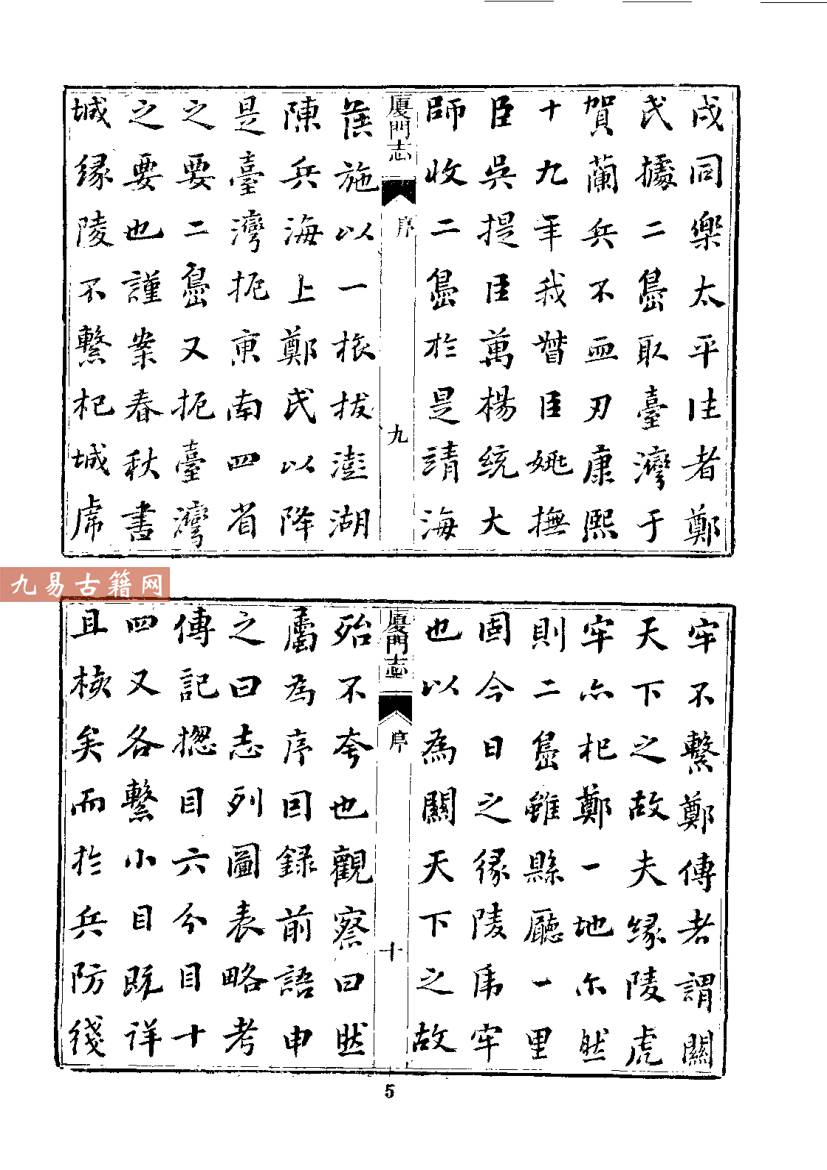 戍同樂太平往者鄭
氏據二島取臺灣于
賀蘭兵不血刃康熙
十九年我督臣姚撫
臣吳提臣萬楊統大
師收二島於是靖海
廈門志
序
九
侯施以一旅拔澎湖
陳兵海上鄭氏以降
是臺灣扼東南四省
之要二島又扼臺灣
之要也謹案春秋書
城緣陵不繫杞城虎
九易古籍网
牢不繫鄭傳者謂關
天下之故夫緣陵虎
牢亦杞鄭一地尔然
則二島雖縣廳一里
固今日之緣陵虎牢
也以為關天下之故
廈門志
序
十
殆不夸也觀察曰然
屬為序因錄前語申
之曰志列圖表略考
傳記揔目六分目十
四又各繫小目既詳
且核矣而於兵防綫
5